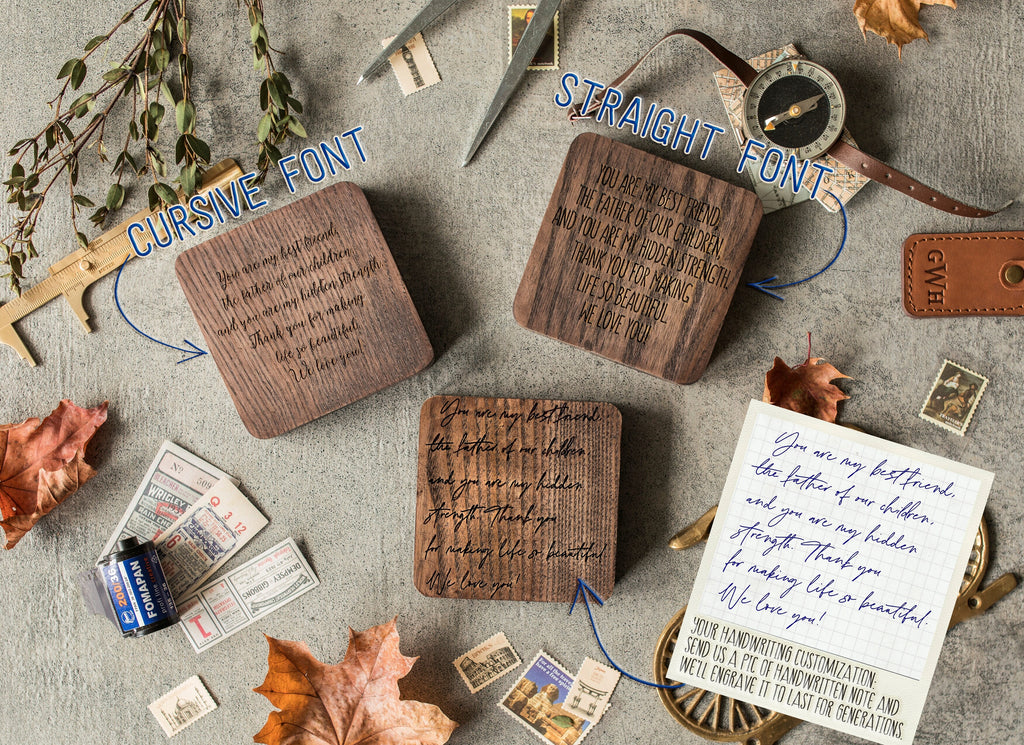 CURSIVE FONT
STRAIGHT FONT
You are my best friend,
the father of our children,
and you are my hidden strength.
Thank you for making
life so beautiful.
We love you!
YOU ARE MY BEST FRIEND,
THE FATHER OF OUR CHILDREN,
AND YOU ARE MY HIDDEN STRENGTH.
THANK YOU FOR MAKING
LIFE SO BEAUTIFUL.
WE LOVE YOU!
GWH
You are my best friend,
the father of our children
and you are my hidden
strength. Thank you
for making life so beautiful.
We love you!
You are my best friend,
the father of our children,
and you are my hidden
strength. Thank you
for making life so beautiful.
We love you!
YOUR HANDWRITING CUSTOMIZATION:
SEND US A PIC OF HANDWRITTEN NOTE AND
WE'LL ENGRAVE IT TO LAST FOR GENERATIONS.
No.
WRIGLEY
RAIN CHECK
Q 3 12
DEMPSEY GIBBONS
200/36
FOMAPAN